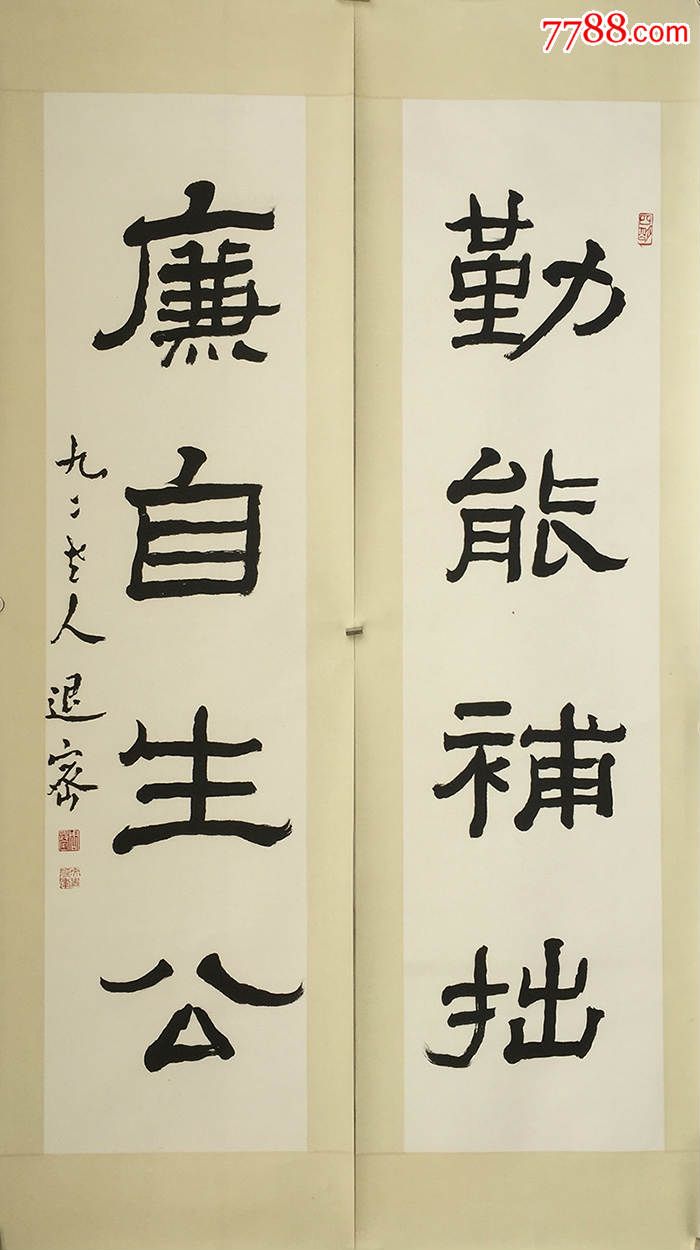 7788.com
勤能補拙
廉自生公
九二老人退密